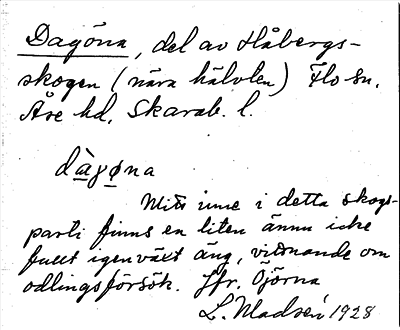 Dagöna, del av Håbergs-
skogen (nära hälvlen) Flo sn.
Åse hd. Skarab. l.
dàgøna
Mitt inne i detta skogs-
parti finns en liten ännu icke
fullt igenväxt äng, vittnande om
odlingsförsök. Jfr. Öjörna
L. Madsén 1928